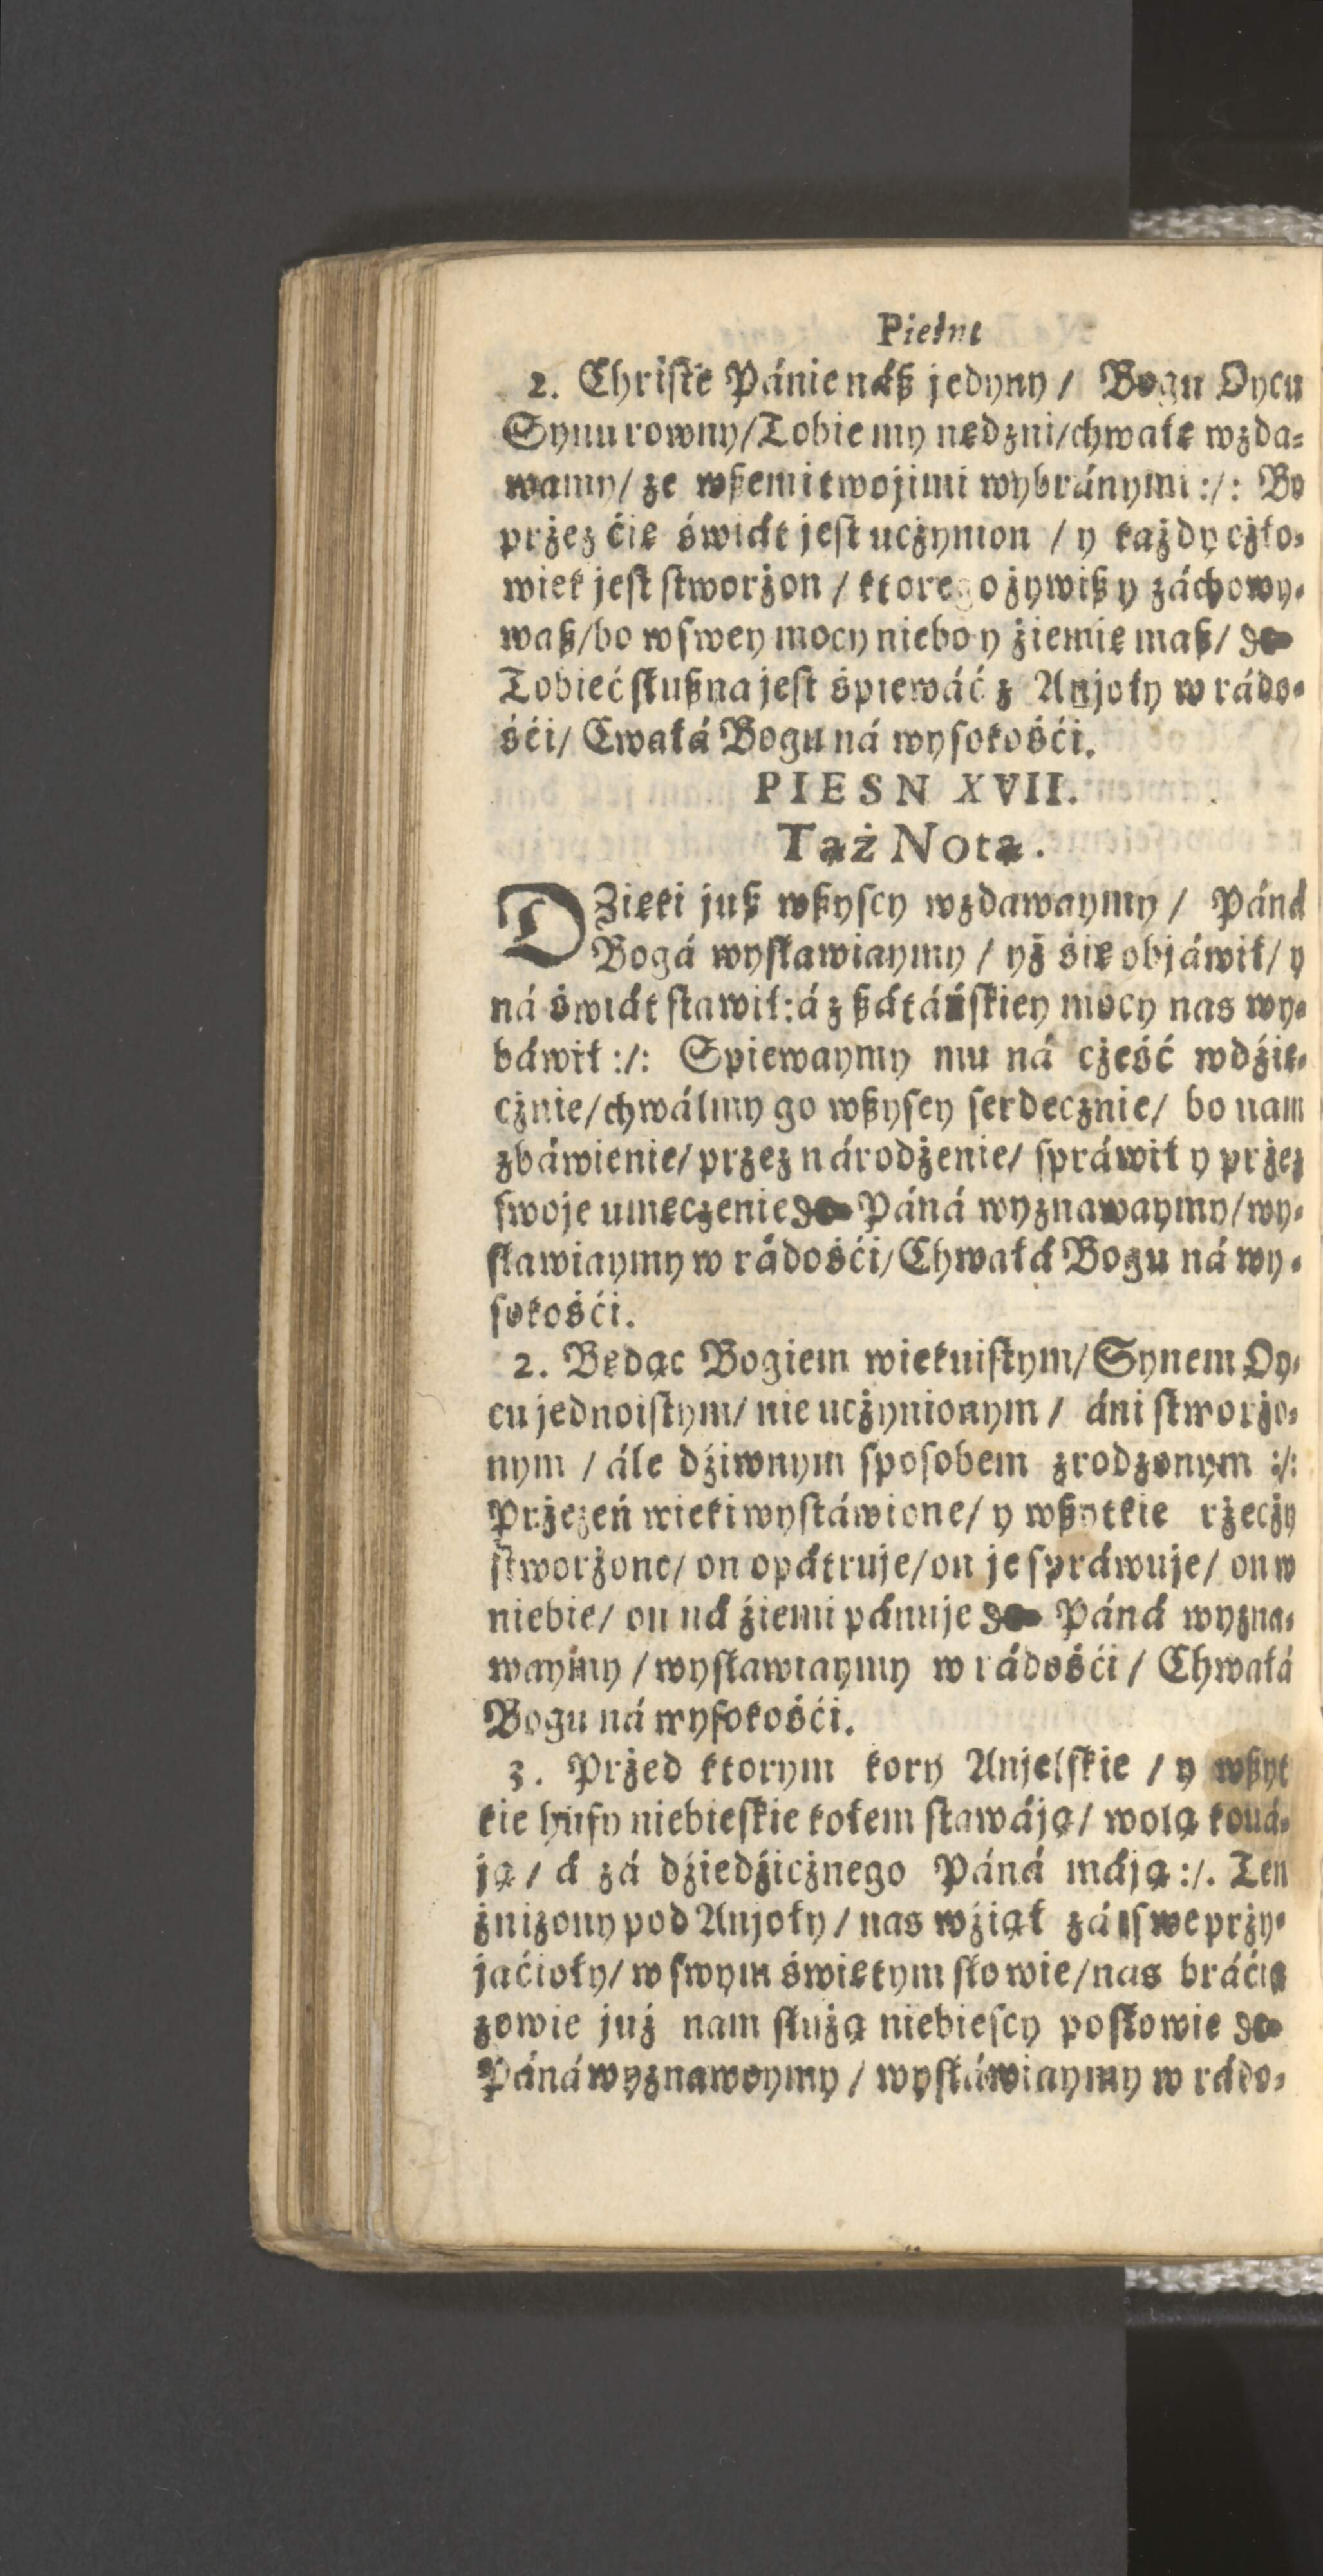 Pieśni
2. Christe Pánie náß jedyny / Bogu Oycu
Synu rowny/Tobie my nędzni/chwałę wzda-
wamy/ ze wßemi twojimi wybránymi :/: Bo
prżez ćię świát jest ucżynion / y każdy cżło-
wiek jest stworżon / ktorego żywiß y záchowy-
waß/bo w swey mocy niebo y żiemię maß/
Tobieć słußna jest śpiewáć z Anjoły w rádo-
śći/ Cwałá Bogu ná wysokośći.
PIESN XVII.
Taż Nota.
DZięki juß wßyscy wzdawaymy / Páná
Bogá wysławiaymy / yż śię objáwił/ y
ná świát stawił:á z ßátáńskiey mocy nas wy-
báwił :/: Spiewaymy mu ná cżeść wdźię-
cżnie/chwálmy go wßyscy serdecznie/ bo nam
zbáwienie/ przez národżenie/ spráwił y prżez
swoje umęczenie Páná wyznawaymy/wy-
sławiaymy w rádośći/Chwałá Bogu ná wy-
sokośći.
2. Będąc Bogiem wiekuistym/Synem Oy-
cu jednoistym/ nie ucżynionym / áni stworżo-
nym / ále dźiwnym sposobem zrodzonym :/:
Prżezeń wieki wystáwione/ y wßytkie rżecży
stworżone/ on opátruje/on je spráwuje/ on w
niebie/ on ná żiemi pánuje Páná wyzna-
waymy / wysławiaymy w rádośći / Chwałá
Bogu ná wysokośći.
3. Prżed ktorym kory Anjelskie / y wßyt
kie hufy niebieskie kołem stawáją/ wolą koná-
ją / á zá dźiedźicżnego Páná máją :/. Ten
żniżony pod Anjoły / nas wżiął zá swe prży-
jaćioły/ w swym świętym słowie/nas bráćią
zowie już nam służą niebiescy posłowie
Páná wyznawoymy / wysłáwiaymy w rádo-